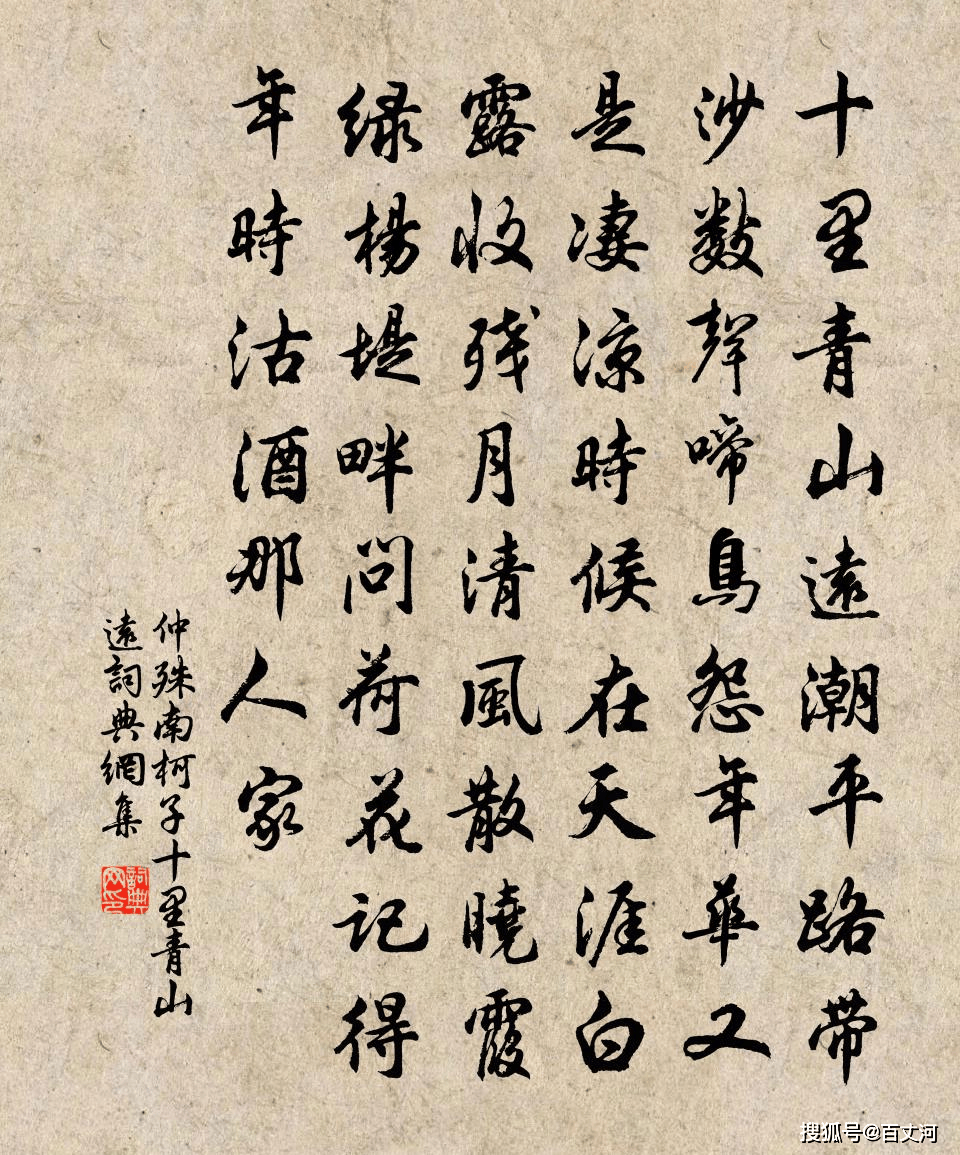 十里青山遠潮平路带
沙數聲啼鳥怨年華又
是淒涼時候在天涯白
露收残月清風散曉霞
绿楊堤畔問荷花記得
年時沽酒那人家
仲殊南柯子十里青山
遠詞典網集
詞典
网印
搜狐号@百丈河